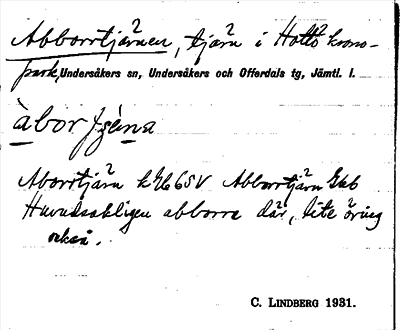 Abborrtjärnen, tjärn i Hotto krono-
park, Undersåkers sn, Undersåkers och Offerdals tg, Jämtl. l.
àborʃǥèna
Aborrtjärn Abborrtjärn Gkb
Huvudsakligen abborre där, lite öring
också.
C. LINDBERG 1931.